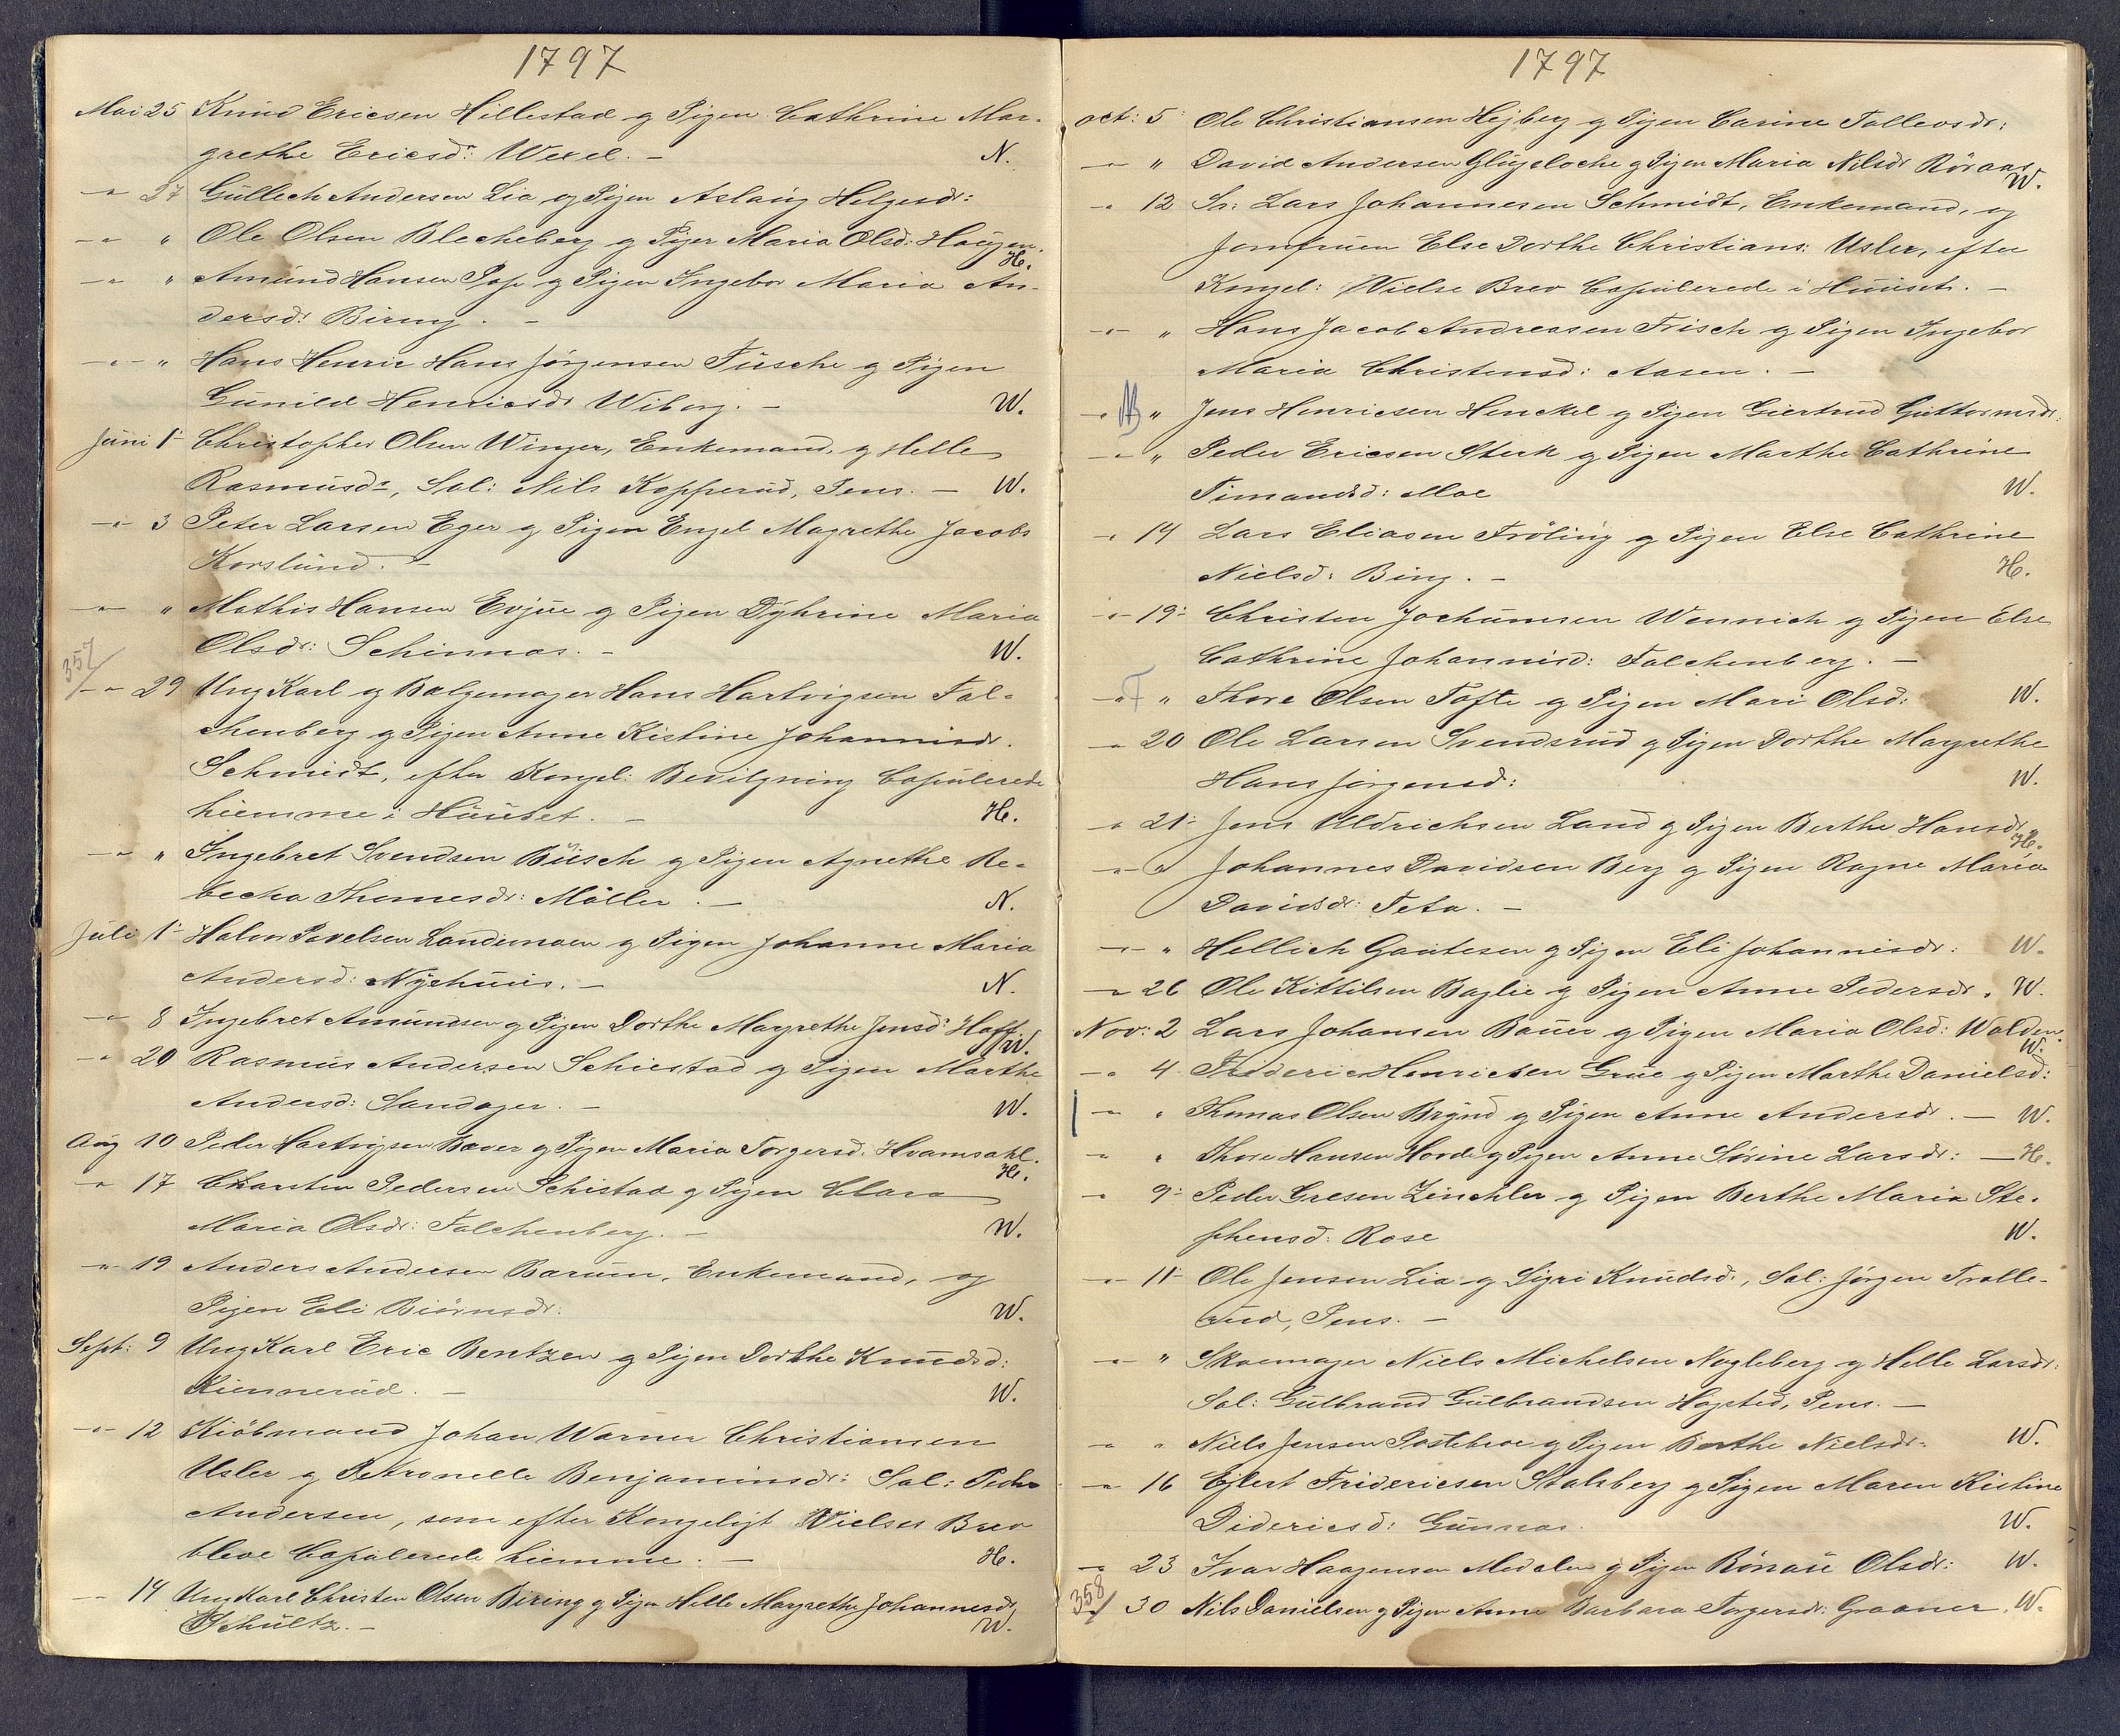 1797
Mai 25 Knud Ericsen Hillestad og Pigen Cathrine Mar-
grethe Ericsdr: Wexel. — N.
—"— 27 Gullich Andersen Lia og Pigen Aslaug Helgesdr:
—"— " Ole Olsen Blecheberg og Piger Maria Olsd: Haugen.
H.
—"— " Amund Hansen og Pigen Ingebor Maria An-
dersd: Biring. —
—"— " Hans Henric Hans Jörgensen Tusche og Pigen
Gunild Henricsdr Wiborg. — W.
Juni 1 Christopher Olsen Winger, Enkemand, og Helle
Rasmusdr, Sal: Nils Kopperud, Pens. — W.
—"— 3 Peter Larsen Eger og Pigen Engel Magrethe Jacobs
Korslund. —
—"— " Mathis Hansen Evjue og Pigen Dÿhrine Maria
Olsdr: Schinnas. — W.
357
—"— 29 Ung Karl og Bælgemager Hans Hartvigsen Fal-
chenberg og Pigen Anne Kistine Johannisdr.
Schmidt, efter Kongel: Bevilgning Copulerede
hiemme i Huuset. — H.
—"— " Ingebret Svendsen Büsch og Pigen Agnethe Re-
becha Thomesdr: Möller. — N.
Juli 1 Halvor Pavelsen Landemoen og Pigen Johanne Maria
Andersd: Nÿehuus. — N.
—"— 8 Ingebret Amundsen og Pigen Dorthe Margrethe Jensd: Hoff
W.
—"— 20 Rasmus Andersen Schiestad og Pigen Marthe
Andersd: Sandager. — W.
Aug 10 Peder Hartvigsen Baver og Pigen Maria Torgersd. Hvamsahl.
H.
—"— 17 Charsten Pedersen Schistad og Pigen Clara
Maria Olsdr: Falchenberg. — W.
—"— 19 Anders Andersen Barum, Enkemand, og
Pigen Eli Biörnsdr: W.
Sept: 9 Ung Karl Eric Bentzen og Pigen Dorthe Knudsd:
Kiennerud. — W.
—"— 12 Kiöbmand Johan Warner Christiansen
Usler og Petronelle Benjaminsdr: Sal: Peder
Andersen, som efter Kongeligt Vielses Brev
bleve Copulerede hiemme. — H.
—"— 14 Ung Karl Christen Olsen Biring og Pigen Helle Margrethe Johannesdr
Schultz. — W.
1797
Oct: 5 Ole Christiansen Hejberg og Pigen Carine Tollevsdr:
—"— " David Andersen Glugsloche og Pigen Maria Nilsdr Röraas
W.
—"— 12 Sr: Lars Johannesen Schmidt, Enkemand, og
Jomfruen Else Dorthe Christians: Usler, efter
Kongel: Vielse Brev Copulerede i Huuset. —
—"— " Hans Jacob Andressen Frisch og Pigen Ingebor
Maria Christensd: Aasen. —
—"— " Jens Henricsen Henckel og Pigen Giertrud Guttormsdr:
—"— " Peder Ericsen Sterk og Pigen Marthe Cathrine
Timandsd: Moe W.
—"— 14 Lars Eliasen Fröling og Pigen Else Cathrine
Nielsd: Bing. — H.
—"— 19 Christen Jochumsen Wennich og Pigen Else
Cathrine Johannisd: Falchenberg. —
—"— " Thore Olsen Tofte og Pigen Mari Olsd: W.
—"— 20 Ole Larsen Svendsrud og Pigen Dorthe Margrethe
Hans Jörgensd: W.
—"— 21 Jens Uldrichsen Land og Pigen Berthe Hansdr
H.
—"— " Johannes Davidsen Berg og Pigen Ragne Maria
Davidsdr: Feta. —
—"— " Hellich Gautesen og Pigen Eli Johannisdr: W.
—"— 26 Ole Kittilsen Baglie og Pigen Anne Pedersdr. W.
Nov: 2 Lars Johansen Bauer og Pigen Maria Olsd: Walden.
W.
—"— 4 Frideric Henricsen Grue og Pigen Marthe Danielsd:
—"— " Thomas Olsen Brÿnd og Pigen Anne Andersdr. — W.
—"— " Thore Hansen Horde og Pigen Anne Sörine Larsdr: — H.
—"— 9 Peder Gresen Zinchler og Pigen Berthe Maria Ste-
phensd: Rose W.
—"— 11 Ole Jensen Lia og Sigri Knudsd:, Sal: Jörgen Tralle-
rud, Pens. —
—"— " Skoemager Niels Michelsen Nogleberg og Helle Larsdr:
Sal: Gulbrand Gulbrandsen Hogsted, Pens. —
—"— " Niels Jensen Postebroe og Pigen Berthe Nielsdr. W.
—"— 16 Ejlert Fridericsen Stalsberg og Pigen Maren Kistine
Didericsd: Gunnas. W.
—"— 23 Ivar Haagensen Medalen og Pigen Rönaü Olsdr: W.
358
—"— 30 Nils Danielsen og Pigen Anne Barbara Torgersdr: Graaner. W.